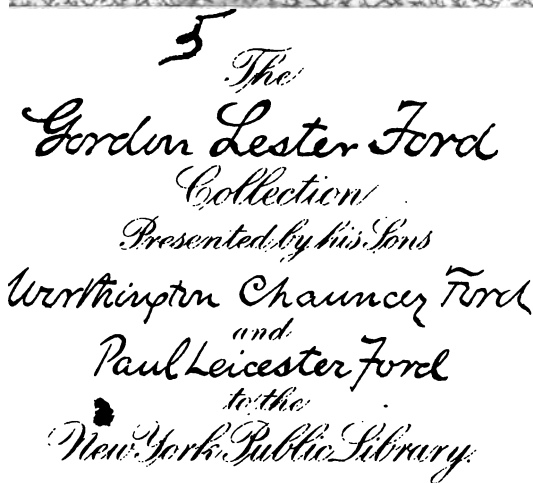 5
The
Gordon Lester Ford
Collection
Presented by his Sons
Worthington Chauncey Ford
and
Paul Leicester Ford
to the
New York Public Library.